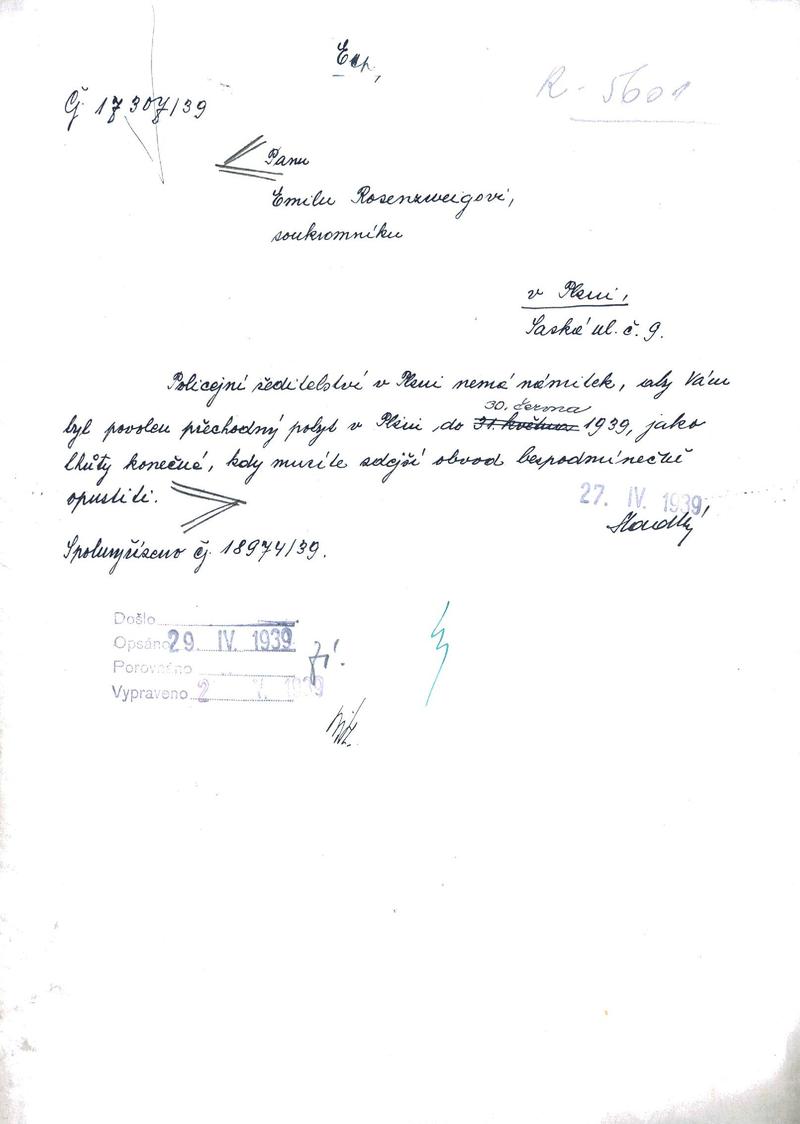 Exp,
R - 5601
Čj 17307/39
Panu
Emilu Rosenzweigovi,
soukromníku
v Plzni,
Saská ul. č. 9.
Policejní ředitelství v Plzni nemá námitek, aby Vám
30. června
byl povolen přechodný pobyt v Plzni do 31. května 1939, jako
lhůty konečné, kdy musíte zdejší obvod bezpodmínečně
opustiti.
27. IV. 1939
Spoluvyřízeno čj. 18974/39.
Došlo
Opsáno 29. IV. 1939
Porovnáno
Vypraveno 2 V. 1939